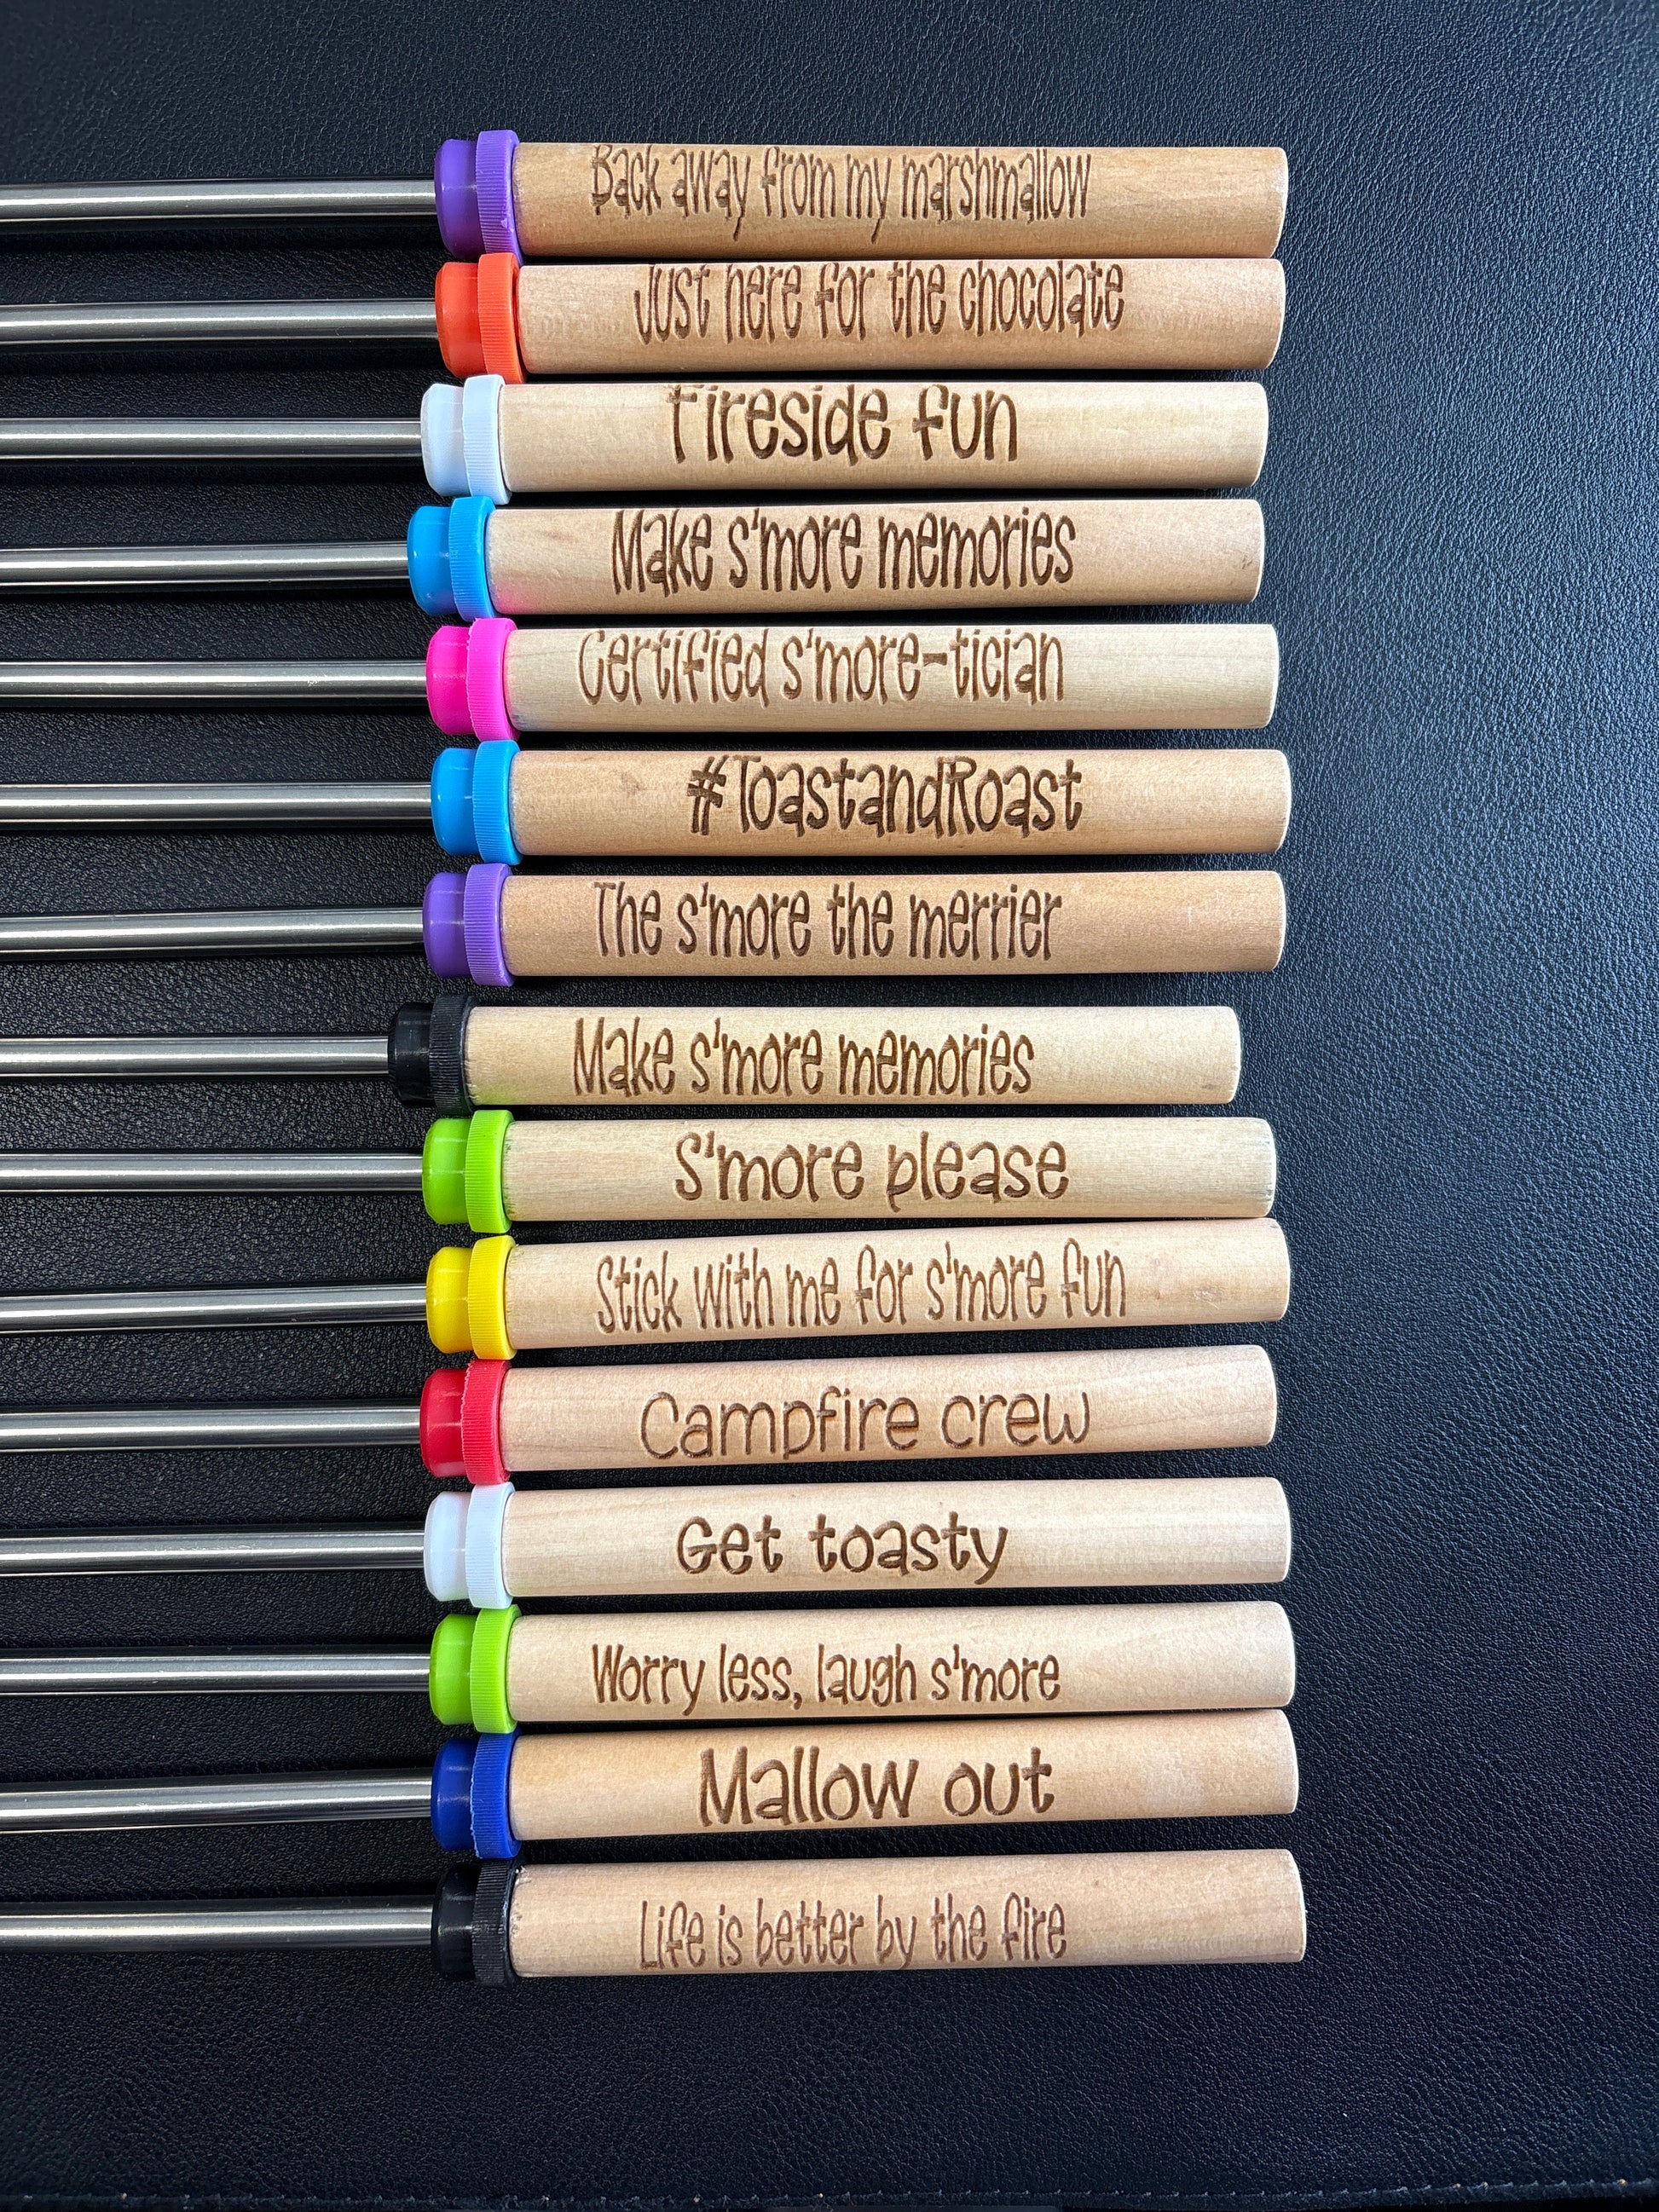 Back away from my marshmallow
Just here for the chocolate
Fireside fun
Make s'more memories
Certified s'more-tician
#ToastandRoast
The s'more the merrier
Make s'more memories
S'more please
Stick with me for s'more fun
Campfire crew
Get toasty
Worry less, laugh s'more
Mallow out
Life is better by the fire